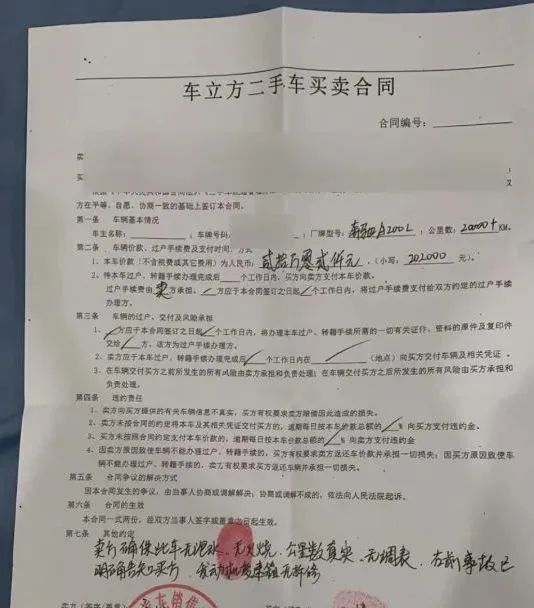 车立方二手车买卖合同
合同编号：
卖
买
方在平等、自愿、协商一致的基础上签订本合同。
第一条 车辆基本情况
车主名称： ；车牌号码： ；厂牌型号：奔驰A200L；公里数：20000+ KM。
第二条 车辆价款、过户手续费及支付时间、方式
1、本车价款（不含税费或其它费用）为人民币：贰拾万零贰仟元（小写：202000 元）。
2、待本车过户、转籍手续办理完成后 个工作日内，买方向卖方支付本车价款。
过户手续费由卖承担。 方应于本合同签订之日起 个工作日内，将过户手续费支付给双方约定的过户手续
办理方。
第三条 车辆的过户、交付及风险承担
1、 方应于本合同签订之日起 个工作日内，将办理本车过户、转籍手续所需的一切有关证件、资料的原件及复印件
交给 方，该方为过户手续办理方。
2、卖方应于本车过户、转籍手续办理完成后 个工作日内在 （地点）向买方交付车辆及相关凭证。
3、在车辆交付买方之前所发生的所有风险由卖方承担和负责处理；在车辆交付买方之后所发生的所有风险由买方承担和
负责处理。
第四条 违约责任
1、卖方向买方提供的有关车辆信息不真实，买方有权要求卖方赔偿因此造成的损失。
2、卖方未按合同的约定将本车及其相关凭证交付买方的，逾期每日按本车价款总额的 % 向买方支付违约金。
3、买方未按照合同约定支付本车价款的，逾期每日按本车价款总额的 % 向卖方支付违约金
4、因卖方原因致使车辆不能办理过户、转籍手续的，买方有权要求卖方返还车价款并承担一切损失；因买方原因致使车
辆不能办理过户、转籍手续的，卖方有权要求买方返还车辆并承担一切损失。
第五条 合同争议的解决方式
因本合同发生的争议，由当事人协商或调解解决；协商或调解不成的，依法向人民法院起诉。
第六条 合同的生效
本合同一式两份，经双方当事人签字或盖章之日起生效。
第七条 其他约定
卖方确保此车无泡水、无火烧、公里数真实、无调表、右前事故已
明确告知买方、发动机变速箱无拆修
卖方（签字/盖章）